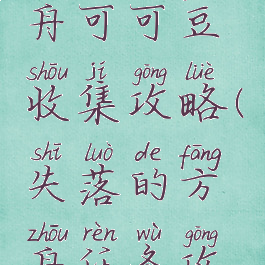 舟可可豆
shōu jí gōng lüè
收集攻略(
shī luò de fāng
失落的方
zhōu rèn wù gōng
舟任务攻